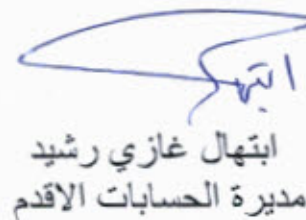 ابتهال
ابتهال غازي رشيد
مديرة الحسابات الاقدم